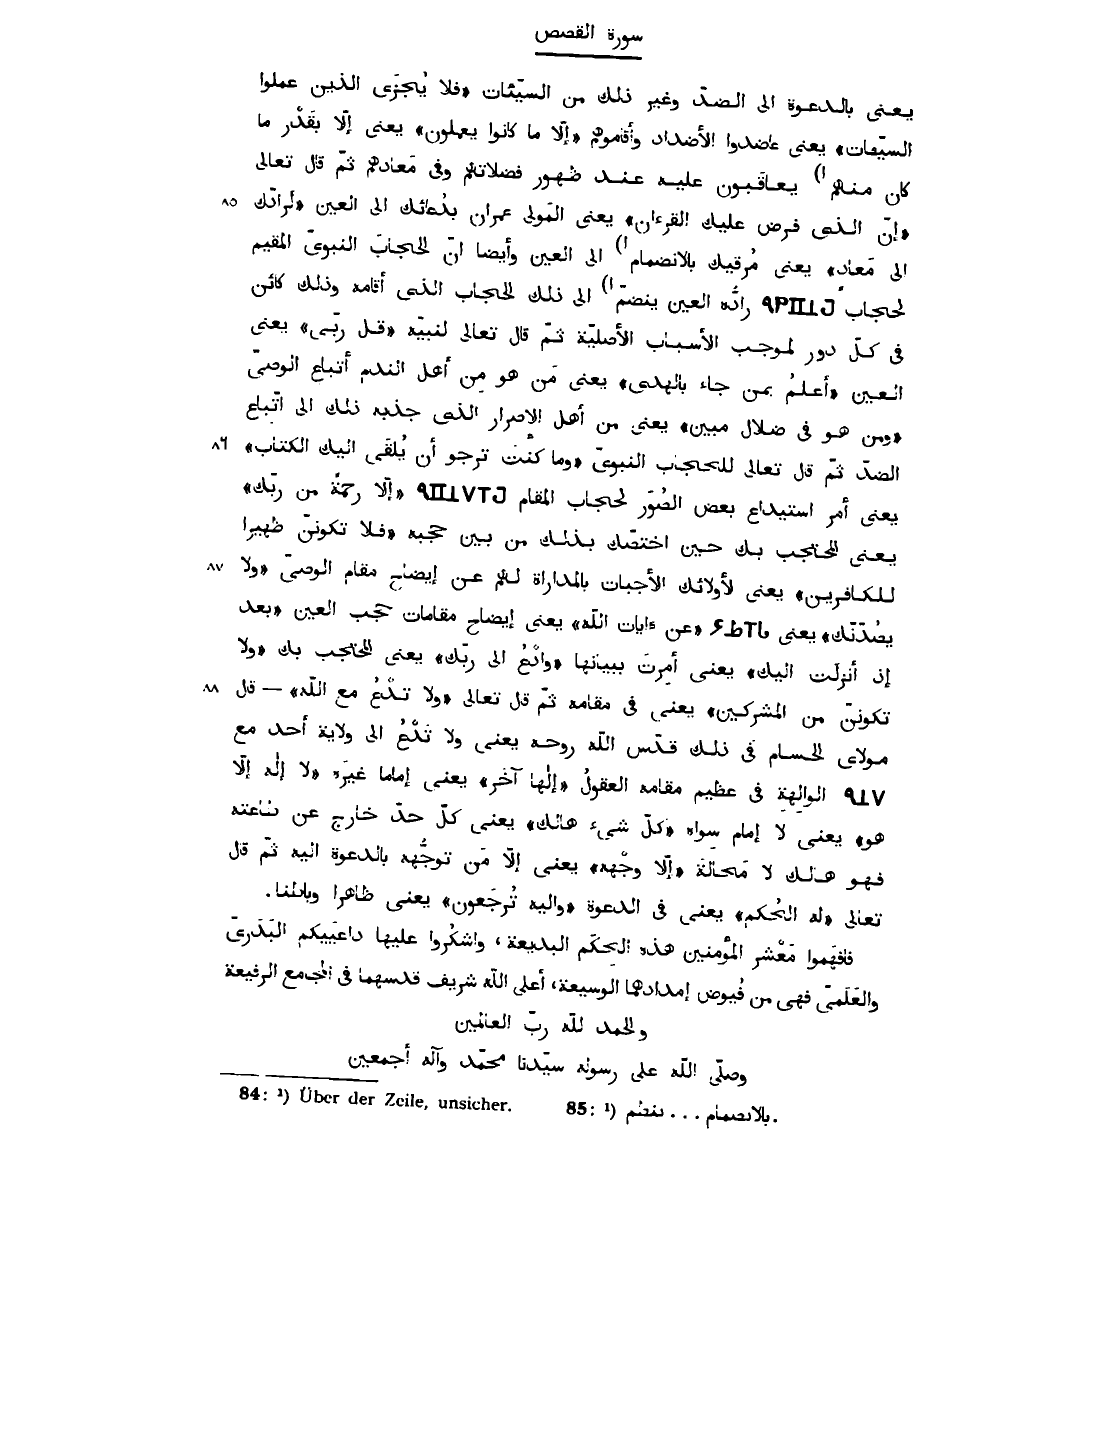 سورة القصص
يعنى بالدعوة الى الضدّ وغير ذلك من السيّئات «فلا يُجزَى الذين عملوا
السيّئات» يعنى عاضدوا الأضداد وأقاموهم «إلّا ما كانوا يعملون» يعنى إلّا بقَدْر ما
كان منهم ¹) يعاقَبون عليه عند ظهور فضلاتهم وفى مَعادهم ثمّ قال تعالى
٨٥ «إنّ الذى فرض عليك القرءان» يعنى المَولى عمران بدُعائك الى العين «لرادّك
الى مَعاد» يعنى مُرقيك بالانضمام ¹) الى العين وأيضا انّ الحجابَ النبوىّ المقيم
لحجاب رادُّه العين ينضمّ ¹) الى ذلك الحجاب الذى أقامه وذلك كائن
فى كلّ دور لموجب الأسباب الأصليّة ثمّ قال تعالى لنبيّه «قل ربّى» يعنى
العين «أعلمُ بمن جاء بالهدى» يعنى مَن هو مِن أهل الندم أتباع الوصىّ
«ومن هو فى ضلال مبين» يعنى من أهل الاصرار الذى جذبه ذلك الى اتّباع
٨٦ الضدّ ثمّ قل تعالى للحجاب النبوىّ «وما كنْتَ ترجو أن يُلقَى اليك الكتاب»
يعنى أمر استيداع بعض الصُوَر لحجاب المقام «إلّا رحمةً من ربّك»
يعنى المحتجب بك حين اختصّك بذلك من بين حجبه «فلا تكوننّ ظهيرا
٨٧ للكافرين» يعنى لأولائك الأجبات بالمداراة لهم عن إيضاح مقام الوصىّ «ولا
يصُدّنّك» يعنى «عن ءايات الله» يعنى إيضاح مقامات حجب العين «بعد
إذ أنزلت اليك» يعنى أُمِرتَ ببيانها «وادْعُ الى ربّك» يعنى المحتجب بك «ولا
٨٨ تكوننّ من المشركين» يعنى فى مقامه ثمّ قل تعالى «ولا تدْعُ مع الله» — قل
مولاى الحسام فى ذلك قدّس الله روحه يعنى ولا تَدْعُ الى ولاية أحد مع
الوالِهةِ فى عظيم مقامه العقولُ «إلٰها آخَر» يعنى إماما غيرَه «لا إلٰه إلّا
هو» يعنى لا إمام سِواه «كلّ شىء هالك» يعنى كلّ حدّ خارج عن طاعته
فهو هالك لا مَحالَةَ «إلّا وجْهه» يعنى إلّا مَن توجُّهه بالدعوة اليه ثمّ قل
تعالى «له الحُكم» يعنى فى الدعوة «واليه تُرجَعون» يعنى ظاهرا وباطنا.
فافهَموا مَعْشر المؤمنين هذه الحِكَم البديعة، واشكُروا عليها داعيَيكم البَدَرىّ
والعَلَمىّ فهى من فُيوض إمدادهما الوسيعة، أعلى الله شريف قدسهما فى المجامع الرفيعة
والحمد للّه ربّ العالمين
وصلّى اللّه على رسوله سيّدنا محمّد وآله أجمعين
84: ¹) Über der Zeile, unsicher. 85: ¹) بالانضمام . . .